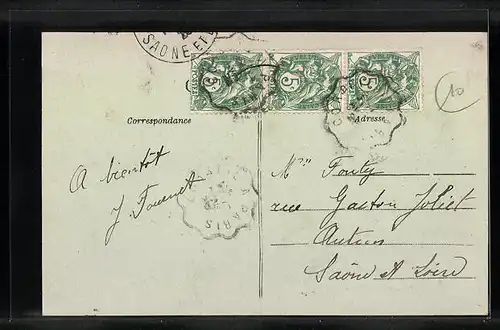 SAONE-ET-
5c 5c 5c
Correspondance
Adresse
10
A bientôt
J. Fournet
A PARIS
Mme Fouty
rue Gaston Joliet
Autun
Saône et Loire